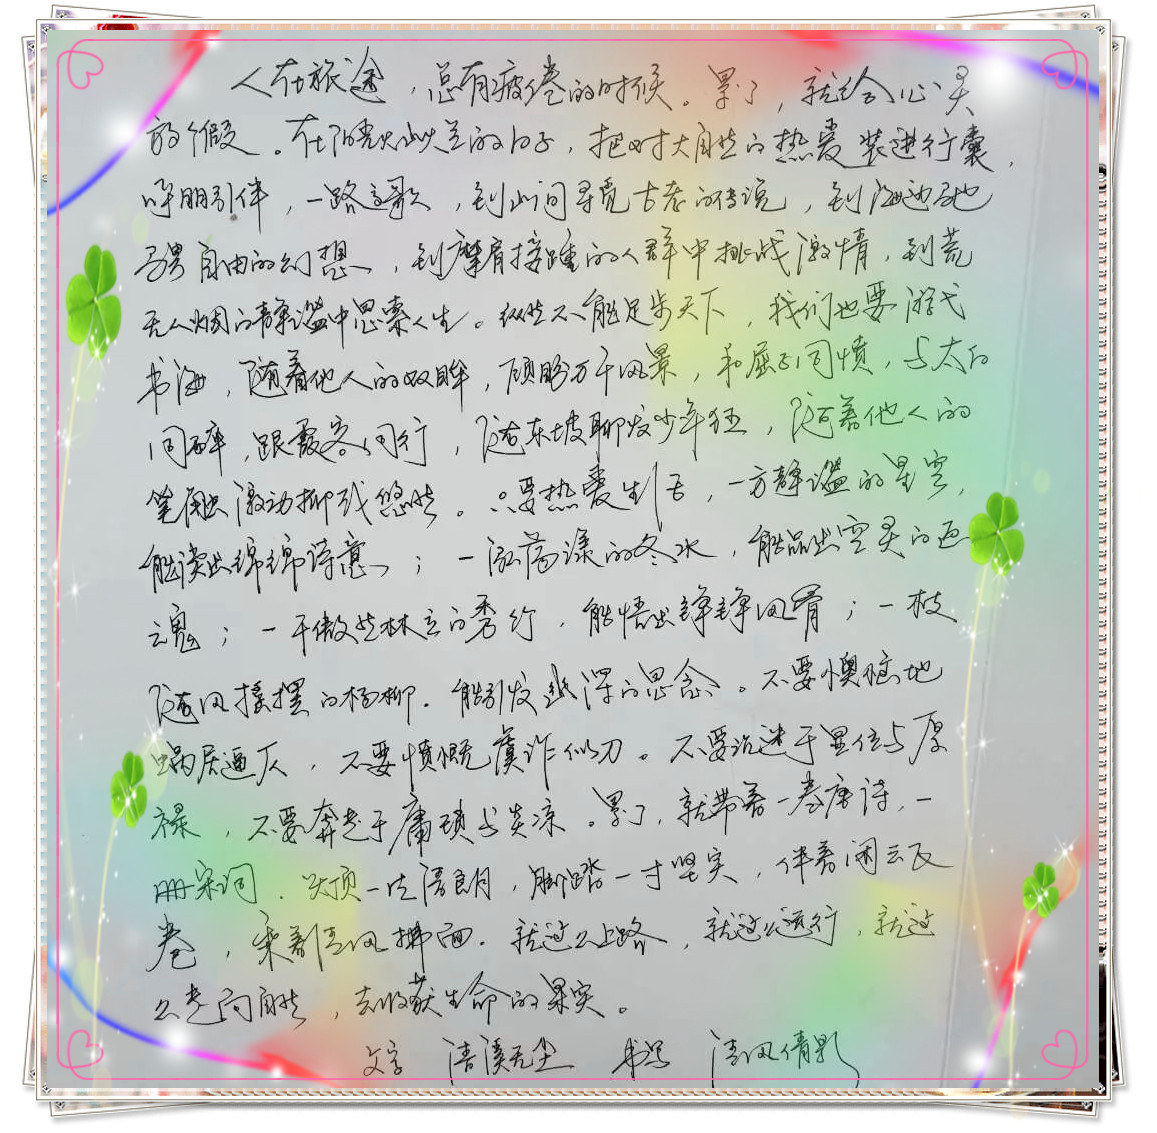 人在旅途，总有疲倦的时候。累了，就给心灵
放个假。在阳光灿烂的日子，把对大自然的热爱装进行囊，
呼朋引伴，一路高歌，到山间寻觅古老的传说，到海边驰
骋自由的幻想，到摩肩接踵的人群中挑战激情，到荒
无人烟的静谧中思索人生。纵然不能足步天下，我们也要游弋
书海，随着他人的双眸，顾盼万千风景，和屈子同愤，与太白
同醉，跟霞客同行，随东坡聊发少年狂，随着他人的
笔触激动抑或悠然。只要热爱生活，一方静谧的星空，
能读出绵绵诗意；一泓荡漾的冬水，能品出空灵的
魂；一干傲然林立的秀竹，能悟出铮铮风骨；一枝
随风摇摆的杨柳，能引发幽深的思念。不要懊恼地
蜗居逼仄，不要愤慨虞诈似刀。不要沉迷于显位与厚
禄，不要奔走于庸琐与炎凉。累了，就带着一卷唐诗，一
册宋词，头顶一片清朗，脚踏一寸坚实，伴着闲云飞
卷，乘着清风拂面，就这么上路，就这么远行，就这
么走向自然，去收获生命的果实。
文字 清溪无尘 书写 清风倩影